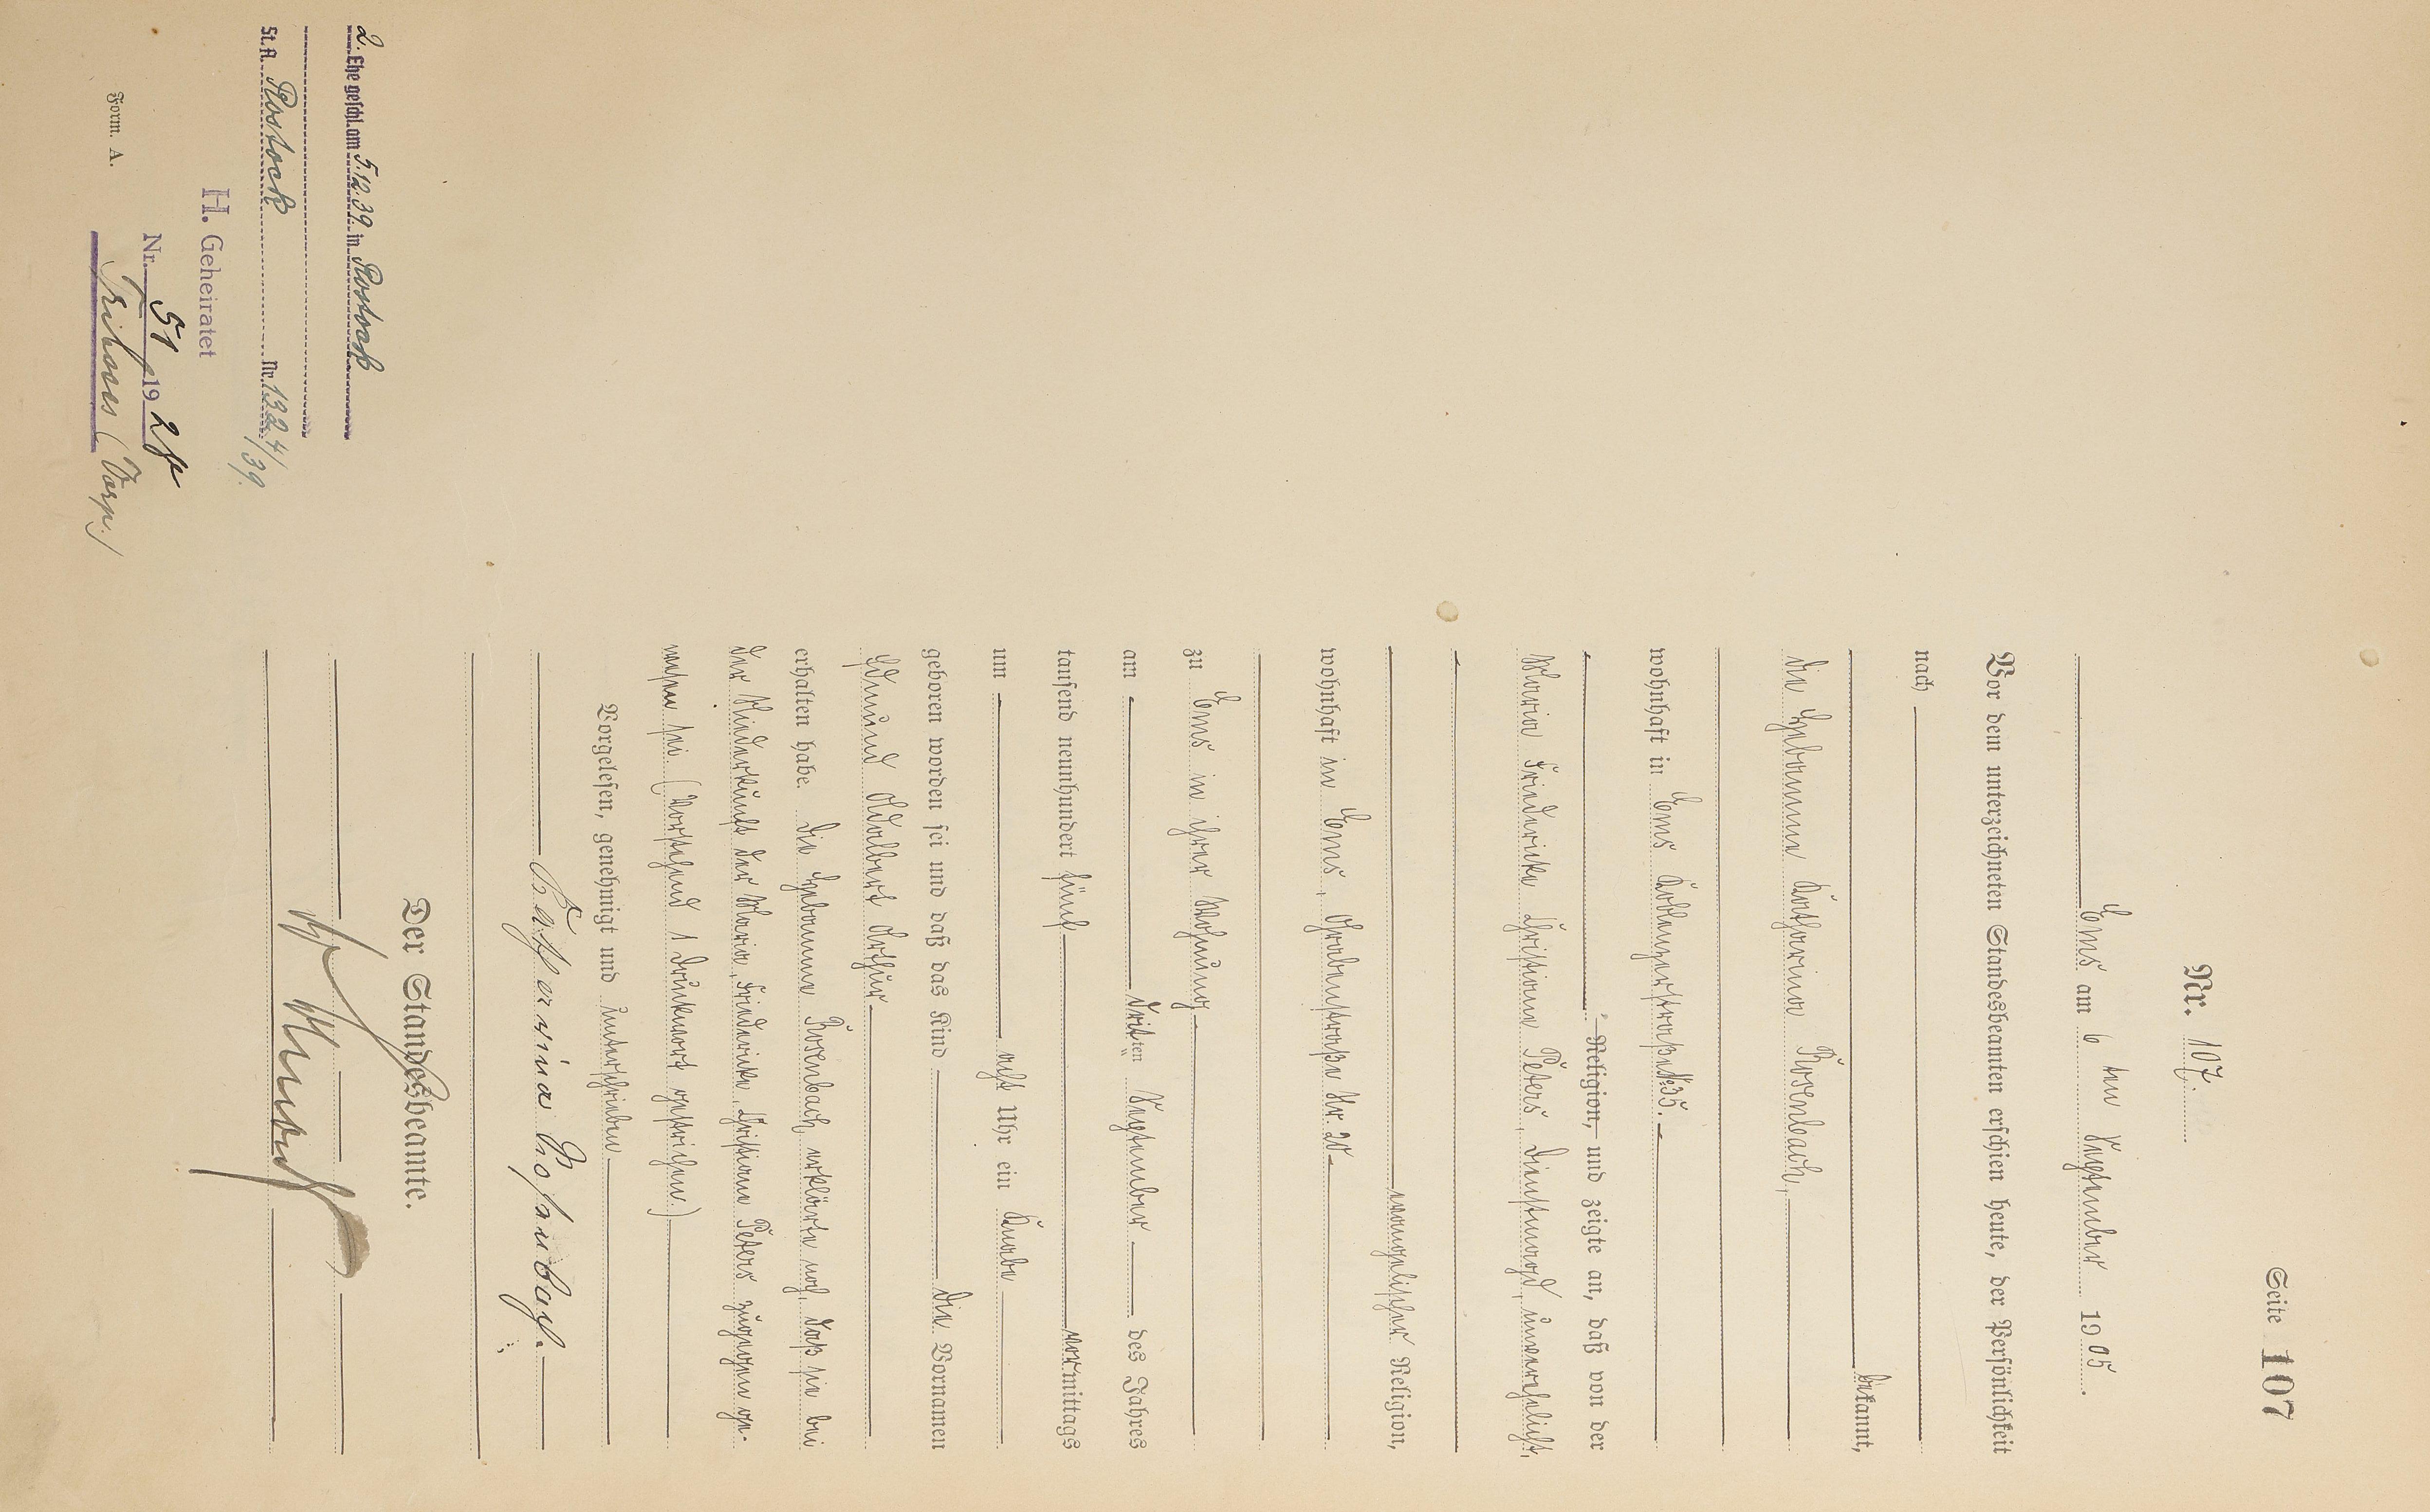 Seite 107
Nr. 107.
Ems am 6 ten September 1905.
Vor dem unterzeichneten Standesbeamten erschien heute, der Persönlichkeit
nach
bekannt,
die Hebamme Katharina Rosenbach,
wohnhaft in Ems Koblenzerstraße No 35.
Religion, und zeigte an, daß von der
Maria Friederike Christiane Peters, Dienstmagd, unverehelicht,
evangelischer Religion,
wohnhaft in Ems, Grabenstraße Nr. 20
zu Ems in ihrer Wohnung
am dritten September des Jahres
tausend neunhundert fünf vormittags
um acht Uhr ein Knabe
geboren worden sei und daß das Kind die Vornamen
Edmund Adalbert Arthur
erhalten habe. Die Hebamme Rosenbach erklärte noch, daß sie bei
der Niederkunft der Maria Friederike Christiane Peters zugegen ge-
wesen sei. (Vorstehend 1 Druckwort gestrichen.)
Vorgelesen, genehmigt und unterschrieben
Katharina Rosenbach.
Der Standesbeamte.
2. Ehe geschl. am 5.12.39. in Rostock
St. A. Rostock Nr. 1324/39.
H. Geheiratet
Nr. 51 1928
Tribsees (Vorp.)
Form. A.